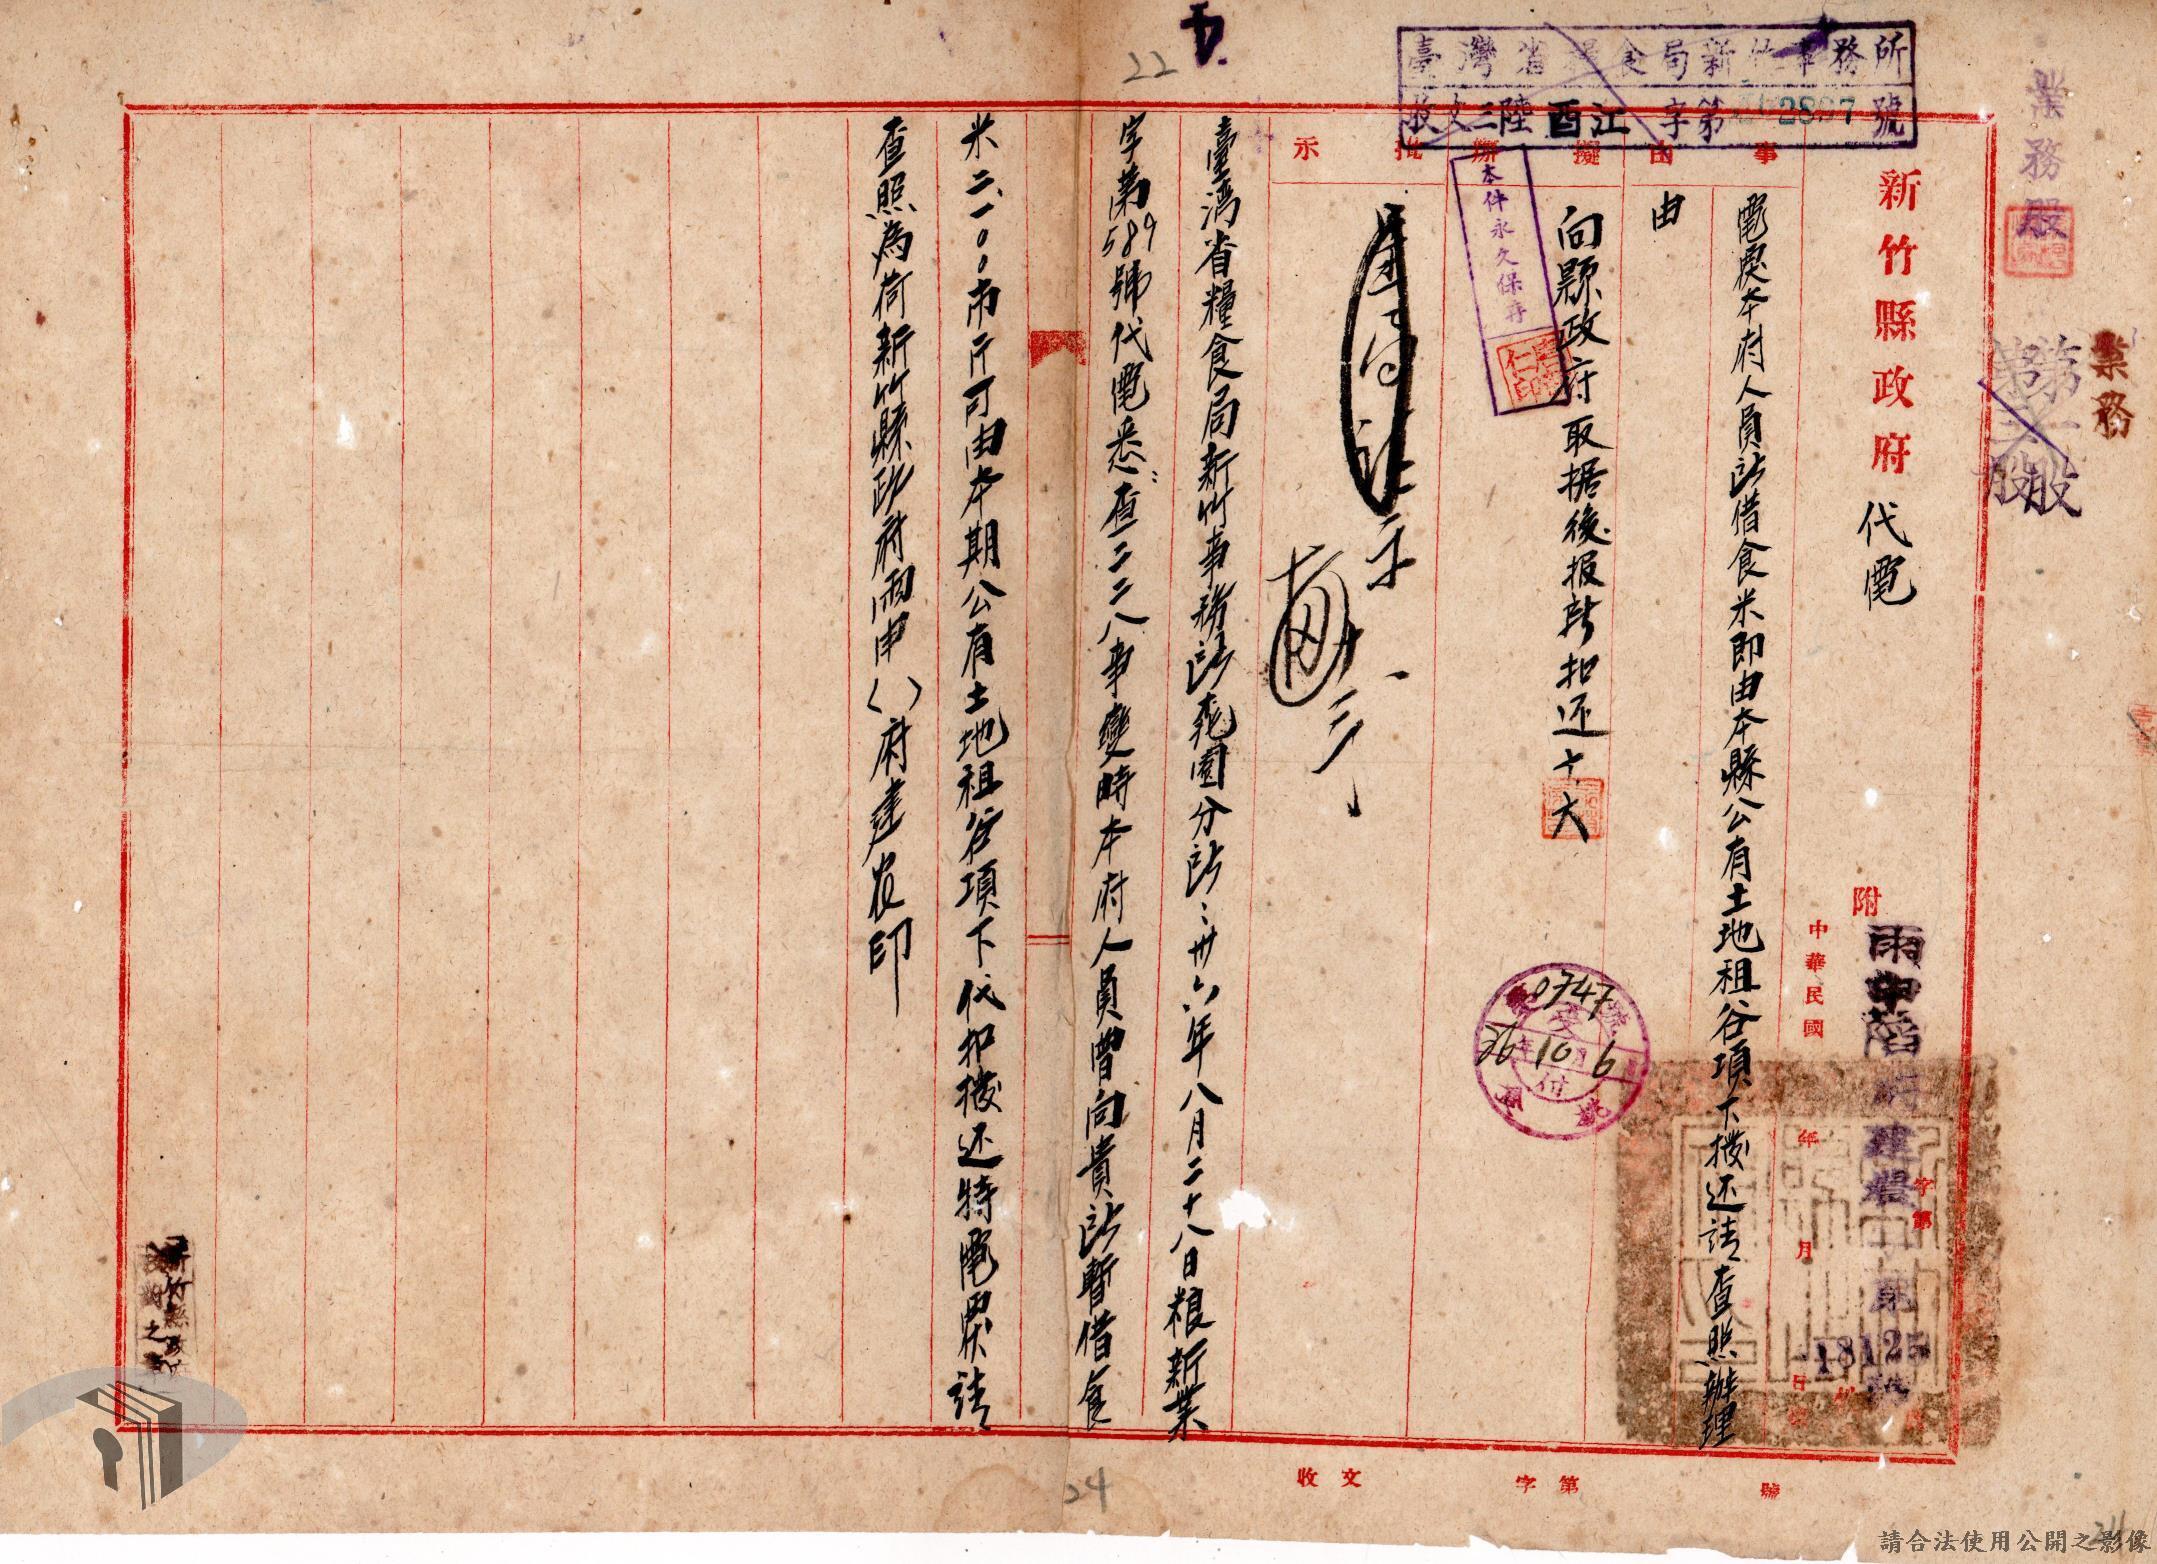 臺灣省糧食局新竹事務所
收文三陸酉江字第2897號
業務股
業務
新竹縣政府代電
附
中華民國 年 月 日
字第
18125
事由
電復本府人員所借食米即由本縣公有土地租谷項下撥还請查照辦理
由
擬辦
向縣政府取據後报所扣还 十、六
本件永久保存
0747
36 10 6
批示
臺湾省糧食局新竹事務所桃園分所:卅六年八月二十八日粮新業
字第589號代電悉:查二二八事變時本府人員曾向貴所暫借食
米二、一〇〇市斤可由本期公有土地租谷項下代扣撥还特電覆請
查照為荷新竹縣政府雨申()府建農印
收文 字第 號
22
24
請合法使用公開之影像